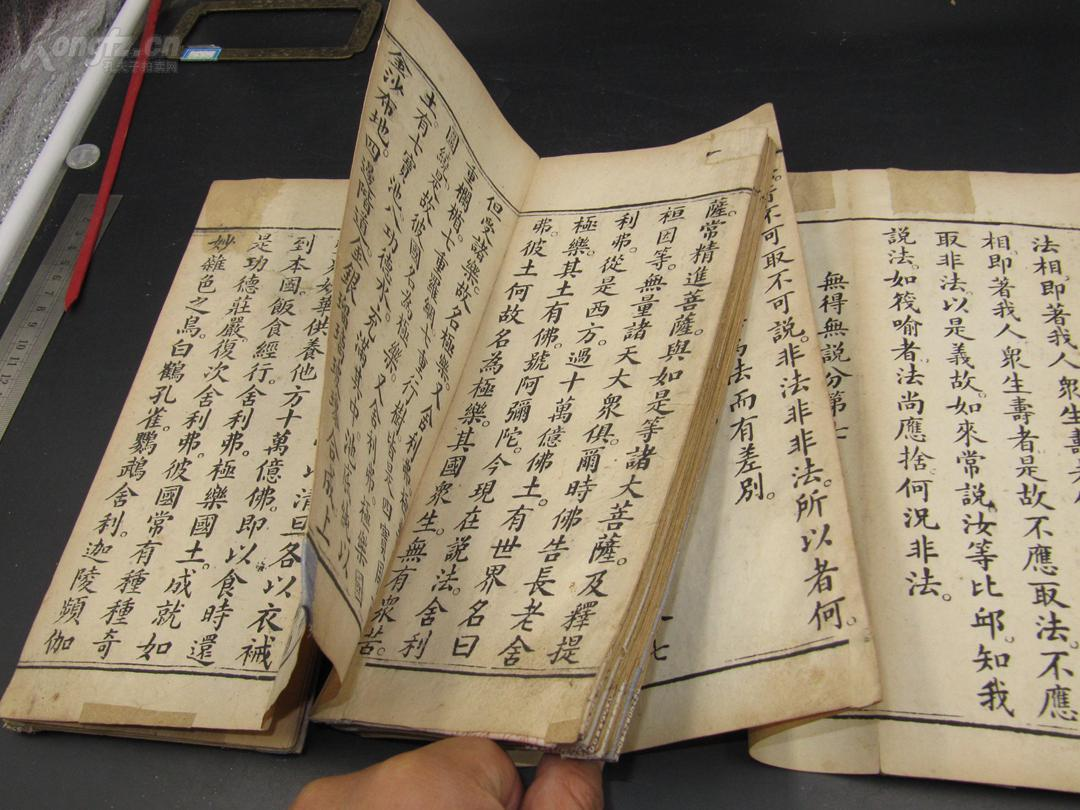 法相。即著我人衆生壽者
相。即著我人衆生壽者。是故不應取法。不應
取非法。以是義故。如來常說。汝等比邱。知我
說法。如筏喻者。法尚應捨。何況非法。
無得無說分第七
不可取不可說。非法非非法。所以者何。
為法而有差別。
十七
薩。常精進菩薩。與如是等諸大菩薩。及釋提
桓因等。無量諸天大衆俱。爾時佛告長老舍
利弗。從是西方。過十萬億佛土。有世界名曰
極樂。其土有佛。號阿彌陀。今現在說法。舍利
弗。彼土何故名為極樂。其國衆生。無有衆苦。
但受諸樂。故名極樂。又舍利弗。極樂國
重欄楯。七重羅網。七重行樹。皆是四寶周
圍繞。是故彼國名為極樂。又舍利弗。極樂國
土有七寶池。八功德水。充滿其中。池底純以
金沙布地。四邊階道。金銀
妙華。供養他方十萬億佛。即以食時。還
清旦各以衣裓
到本國。飯食經行。舍利弗。極樂國土。成就如
是功德莊嚴。復次舍利弗。彼國常有種種奇
妙雜色之鳥。白鶴孔雀。鸚鵡舍利。迦陵頻伽
Kongfz.cn
孔夫子拍卖网
5 6 7 8 9 10 11 12